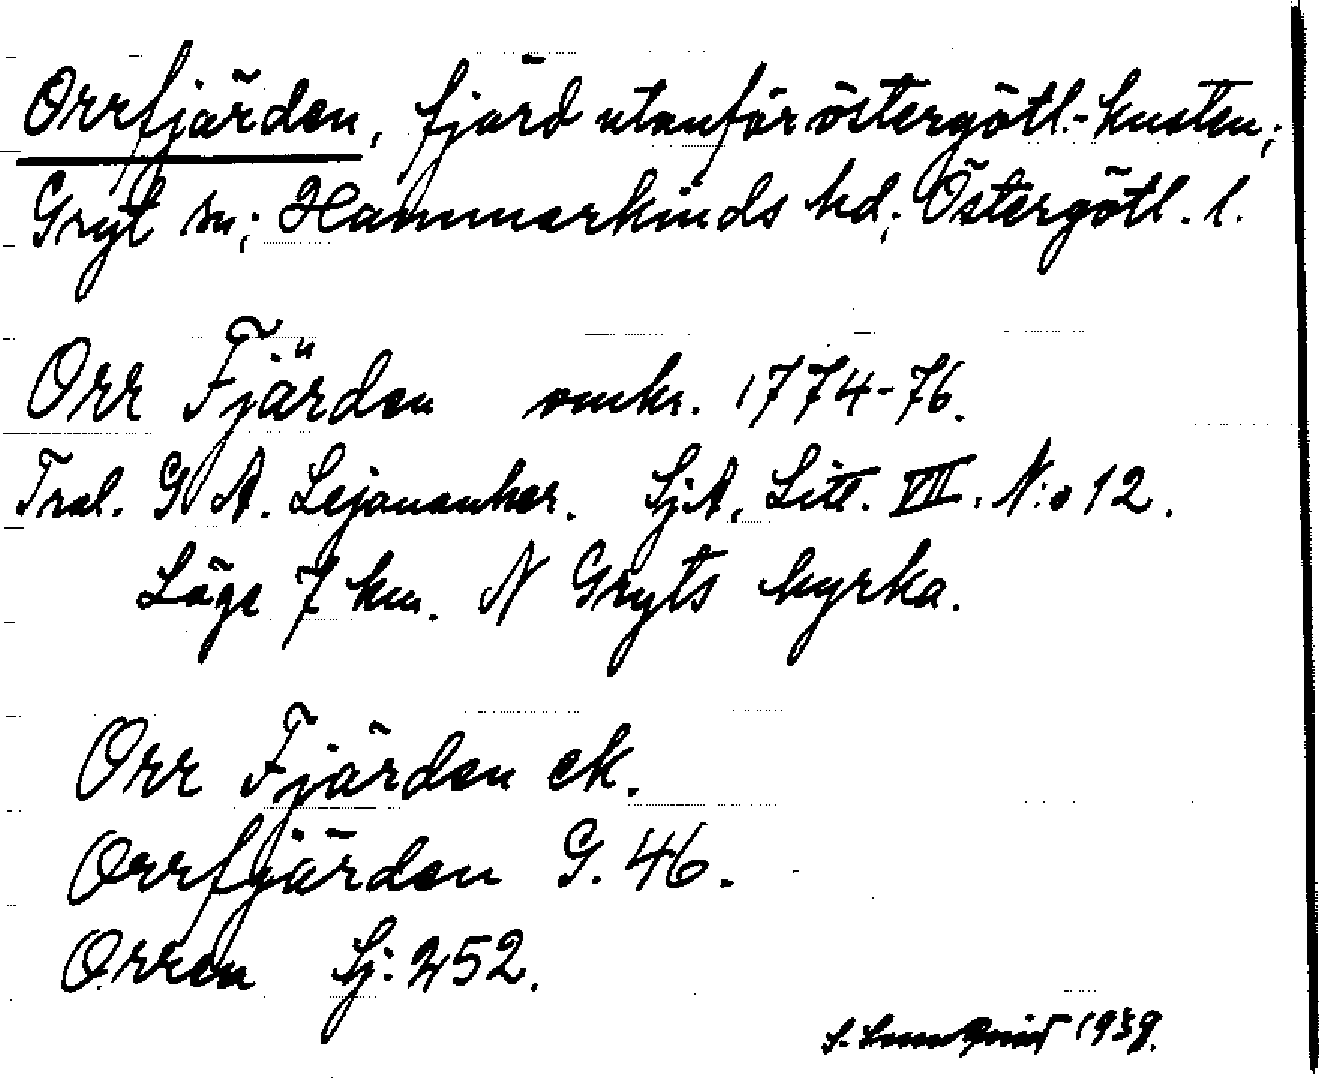 Orrfjärden, fjärd utanför östergötl.-kusten;
Gryt sn; Hammarkinds hd; Östergötl. l.
Orr Fjärden omkr. 1774-76.
Tral. G A. Lejonanker. SjA, Litt. VII. N:o 12.
Läge 7 km. N Gryts kyrka.
Orr Fjärden ek.
Orrfjärden G. 46.
Orren Sj. 252.
1939.